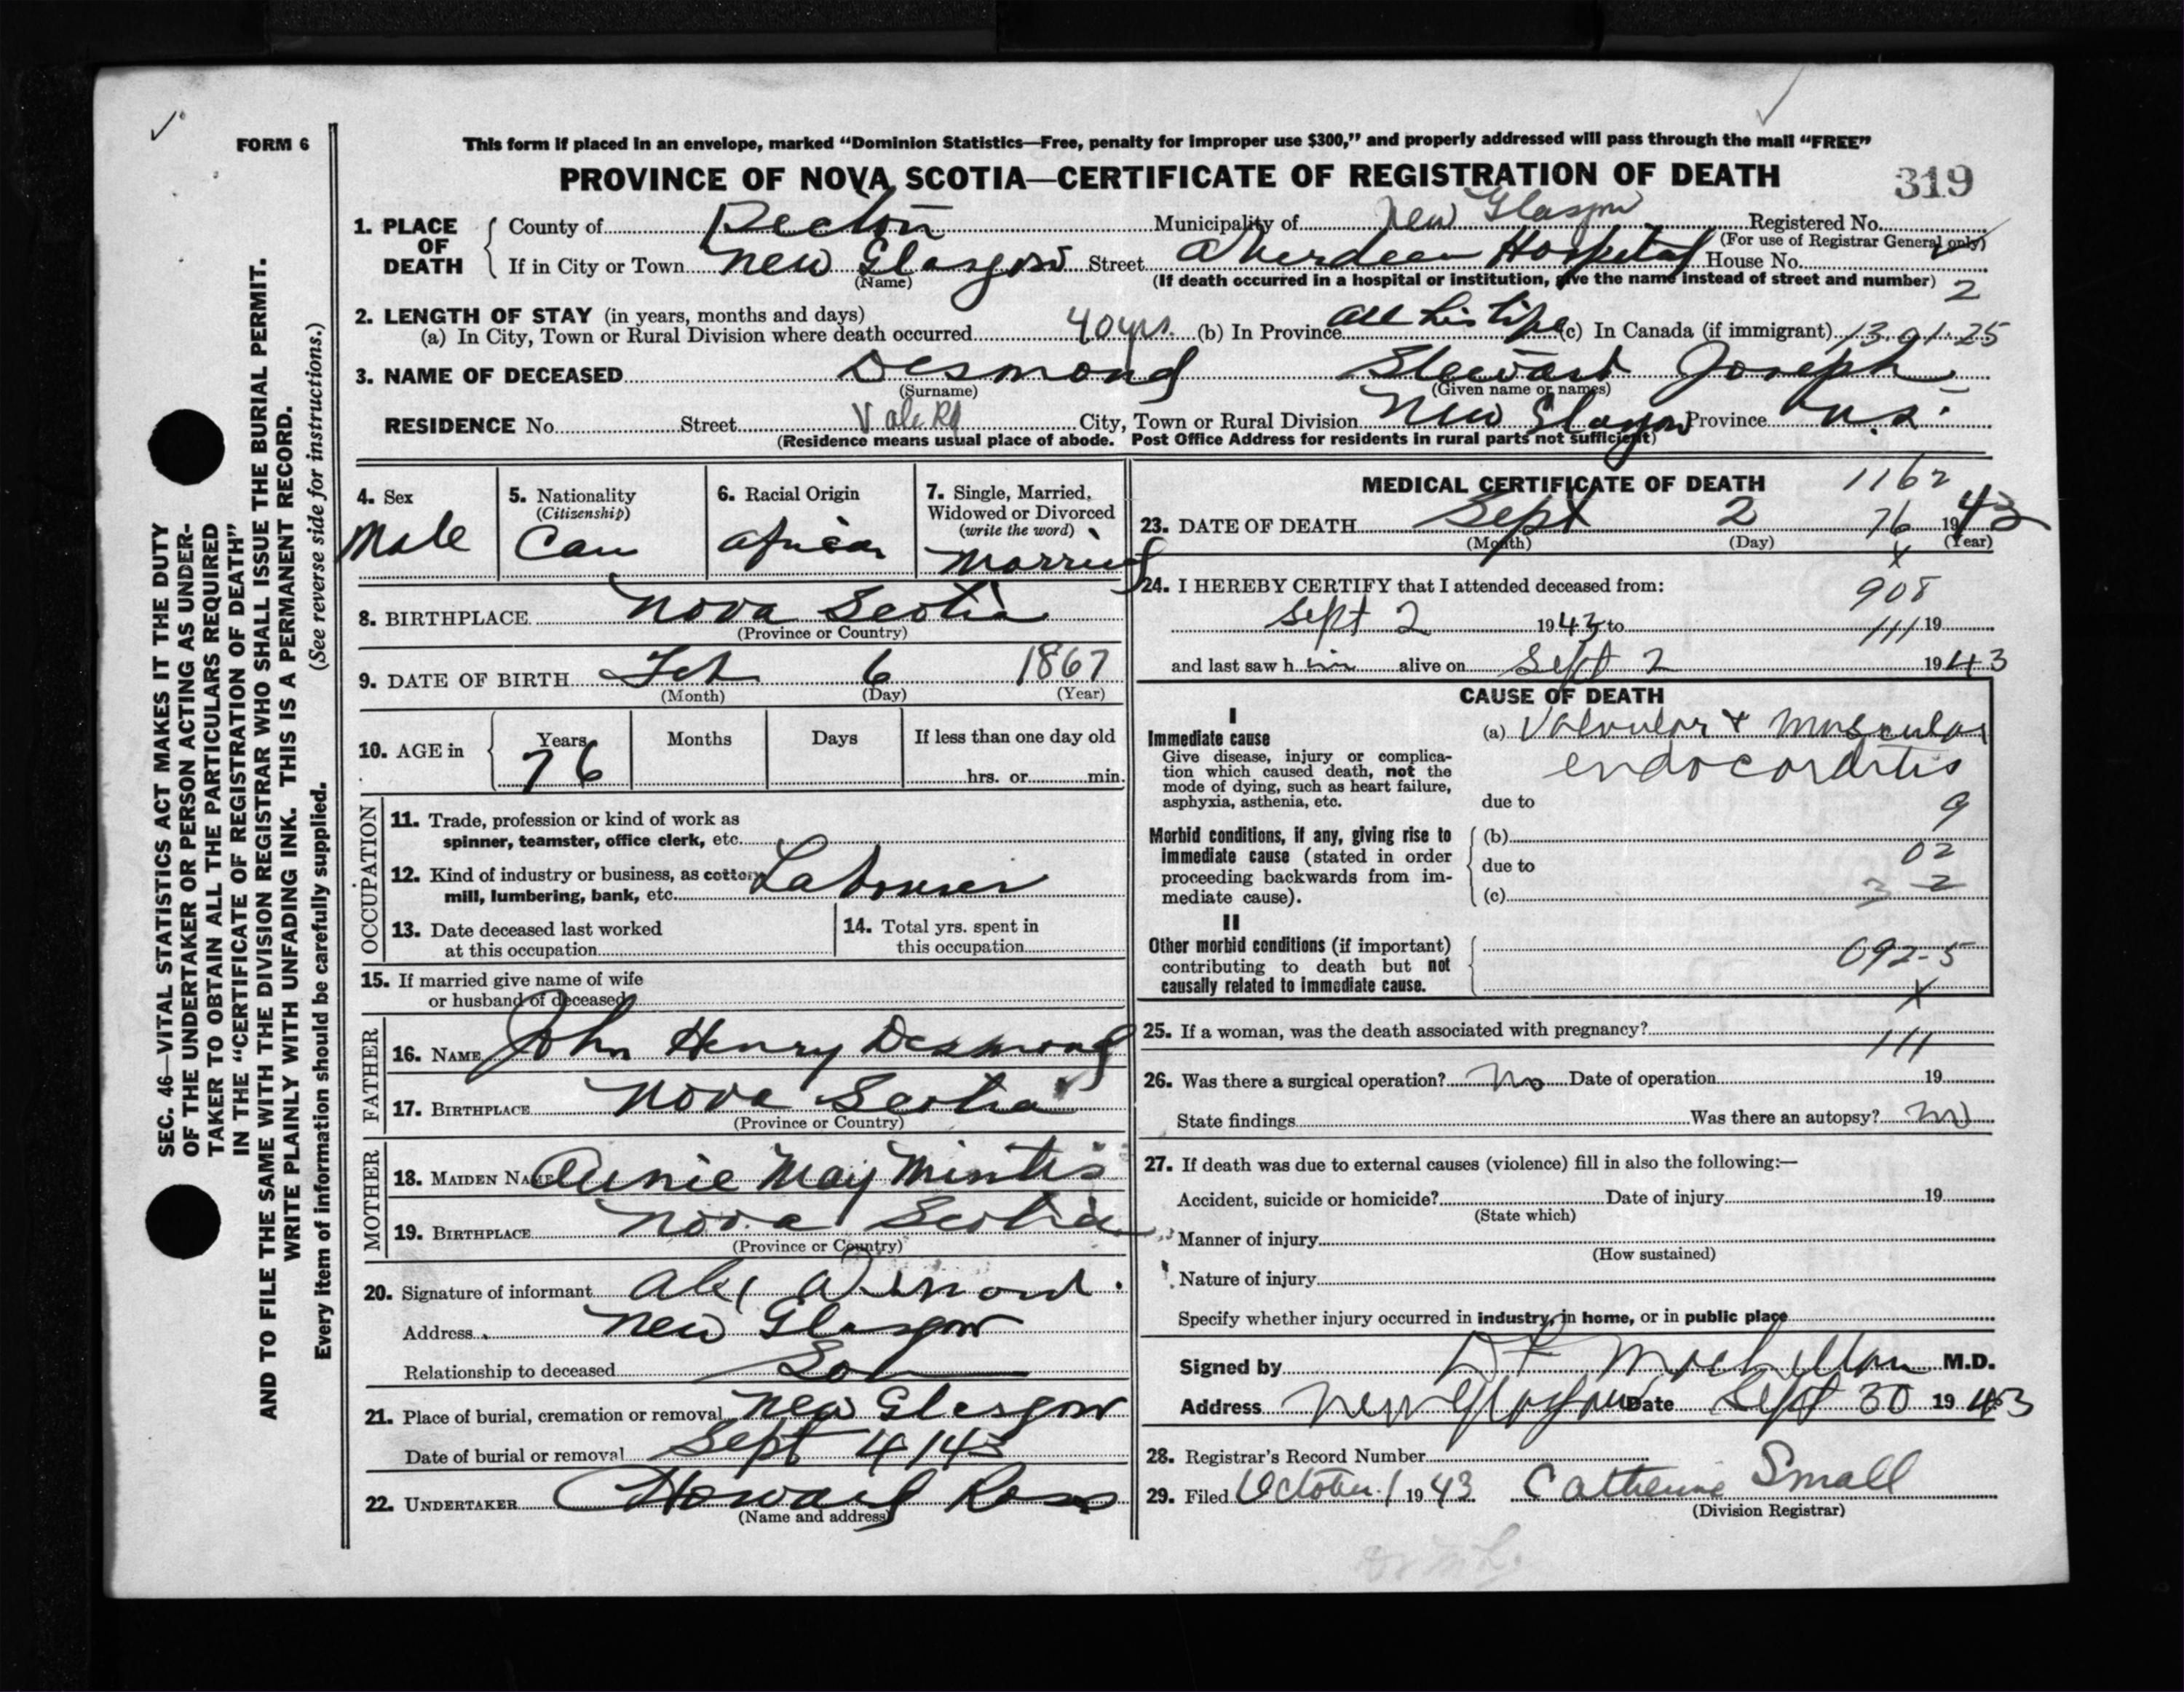 FORM 6
This form if placed in an envelope, marked "Dominion Statistics—Free, penalty for improper use $300," and properly addressed will pass through the mail "FREE"
PROVINCE OF NOVA SCOTIA—CERTIFICATE OF REGISTRATION OF DEATH
319
1. PLACE OF DEATH
County of Pictou Municipality of New Glasgow Registered No.
(For use of Registrar General only)
If in City or Town New Glasgow Street Aberdeen Hospital House No.
(Name)
(If death occurred in a hospital or institution, give the name instead of street and number) 2
2. LENGTH OF STAY (in years, months and days)
(a) In City, Town or Rural Division where death occurred 40 yrs. (b) In Province all his life (c) In Canada (if immigrant) 13 01 25
3. NAME OF DECEASED Desmond Stewart Joseph
(Surname) (Given name or names)
RESIDENCE No. Street Vale Rd City, Town or Rural Division New Glasgow Province N.S.
(Residence means usual place of abode. Post Office Address for residents in rural parts not sufficient)
4. Sex
Male
5. Nationality
(Citizenship)
Can
6. Racial Origin
African
7. Single, Married, Widowed or Divorced
(write the word)
Married
8. BIRTHPLACE Nova Scotia
(Province or Country)
9. DATE OF BIRTH Feb 6 1867
(Month) (Day) (Year)
10. AGE in
Years Months Days If less than one day old
76 hrs. or min.
OCCUPATION
11. Trade, profession or kind of work as
spinner, teamster, office clerk, etc.
12. Kind of industry or business, as cotton
mill, lumbering, bank, etc. Labourer
13. Date deceased last worked
at this occupation
14. Total yrs. spent in
this occupation
15. If married give name of wife
or husband of deceased
FATHER
16. NAME John Henry Desmond
17. BIRTHPLACE Nova Scotia
(Province or Country)
MOTHER
18. MAIDEN NAME Annie May Mintis
19. BIRTHPLACE Nova Scotia
(Province or Country)
20. Signature of informant Alex Desmond.
Address New Glasgow
Relationship to deceased Son
21. Place of burial, cremation or removal New Glasgow
Date of burial or removal Sept 4/43
22. UNDERTAKER Howard Ross
(Name and address)
MEDICAL CERTIFICATE OF DEATH
1162
23. DATE OF DEATH Sept 2 76 1943
(Month) (Day) (Year)
x
24. I HEREBY CERTIFY that I attended deceased from:
908
Sept 2 1943 to 111 19
and last saw him alive on Sept 2 1943
CAUSE OF DEATH
I
Immediate cause
Give disease, injury or complication which caused death, not the mode of dying, such as heart failure, asphyxia, asthenia, etc.
(a) Valvular + muscular
endocarditis
due to
9
Morbid conditions, if any, giving rise to immediate cause (stated in order proceeding backwards from immediate cause).
(b)
02
due to
(c) 3 2
II
Other morbid conditions (if important) contributing to death but not causally related to immediate cause.
092-5
x
25. If a woman, was the death associated with pregnancy?
111
26. Was there a surgical operation? No Date of operation 19
State findings Was there an autopsy? no
27. If death was due to external causes (violence) fill in also the following:—
Accident, suicide or homicide? Date of injury 19
(State which)
Manner of injury
(How sustained)
Nature of injury
Specify whether injury occurred in industry, in home, or in public place
Signed by MacLellan M.D.
Address New Glasgow Date Sept 30 1943
28. Registrar's Record Number
29. Filed October 1 1943 Catherine Small
(Division Registrar)
SEC. 46—VITAL STATISTICS ACT MAKES IT THE DUTY
OF THE UNDERTAKER OR PERSON ACTING AS UNDER-
TAKER TO OBTAIN ALL THE PARTICULARS REQUIRED
IN THE "CERTIFICATE OF REGISTRATION OF DEATH"
AND TO FILE THE SAME WITH THE DIVISION REGISTRAR WHO SHALL ISSUE THE BURIAL PERMIT.
WRITE PLAINLY WITH UNFADING INK. THIS IS A PERMANENT RECORD.
Every item of information should be carefully supplied. (See reverse side for instructions.)